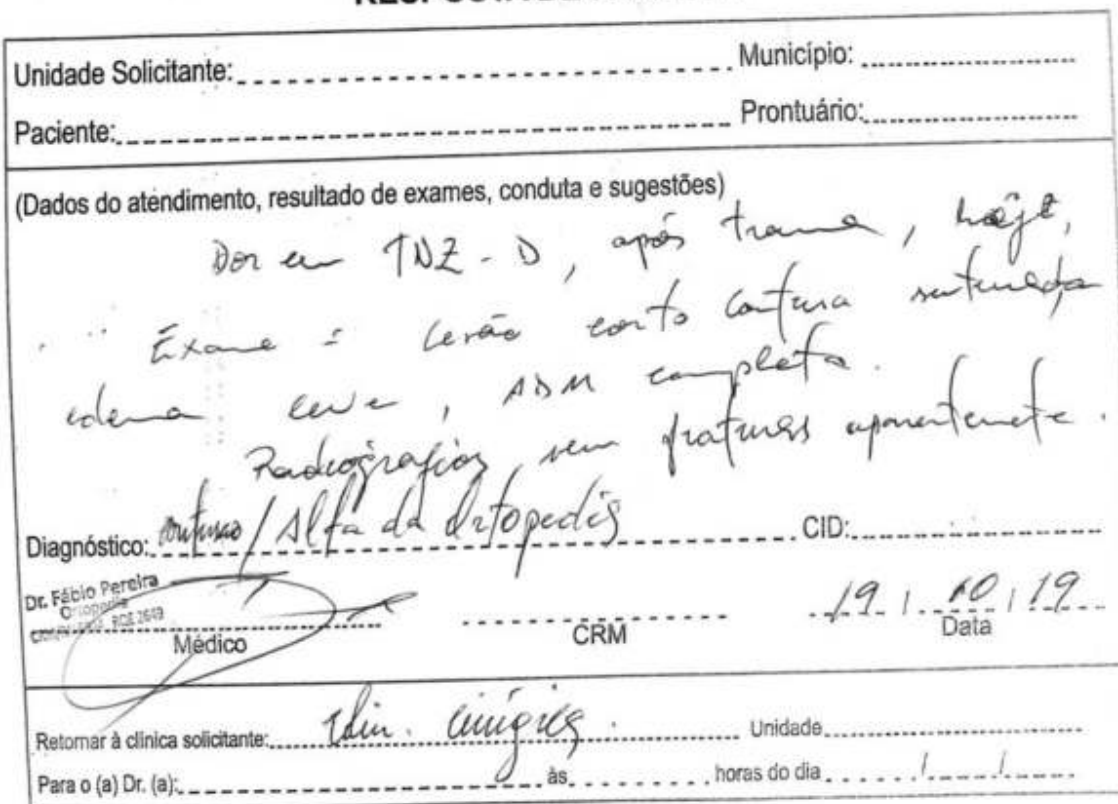 Unidade Solicitante: Município:
Paciente: Prontuário:
(Dados do atendimento, resultado de exames, conduta e sugestões)
Dor em TNZ - D, após trauma, hoje,
Exame : lesão corto contusa suturada
edema leve, ADM completa.
Radiografias, sem fraturas aparentemente.
Diagnóstico: contusao / Alta da Ortopedia CID:
Dr. Fábio Pereira
Ortopedia
RQE 2649
Médico CRM Data
19 / 10 / 19
Retornar à clínica solicitante: cirúrgica. Unidade
Para o (a) Dr. (a): às horas do dia / /